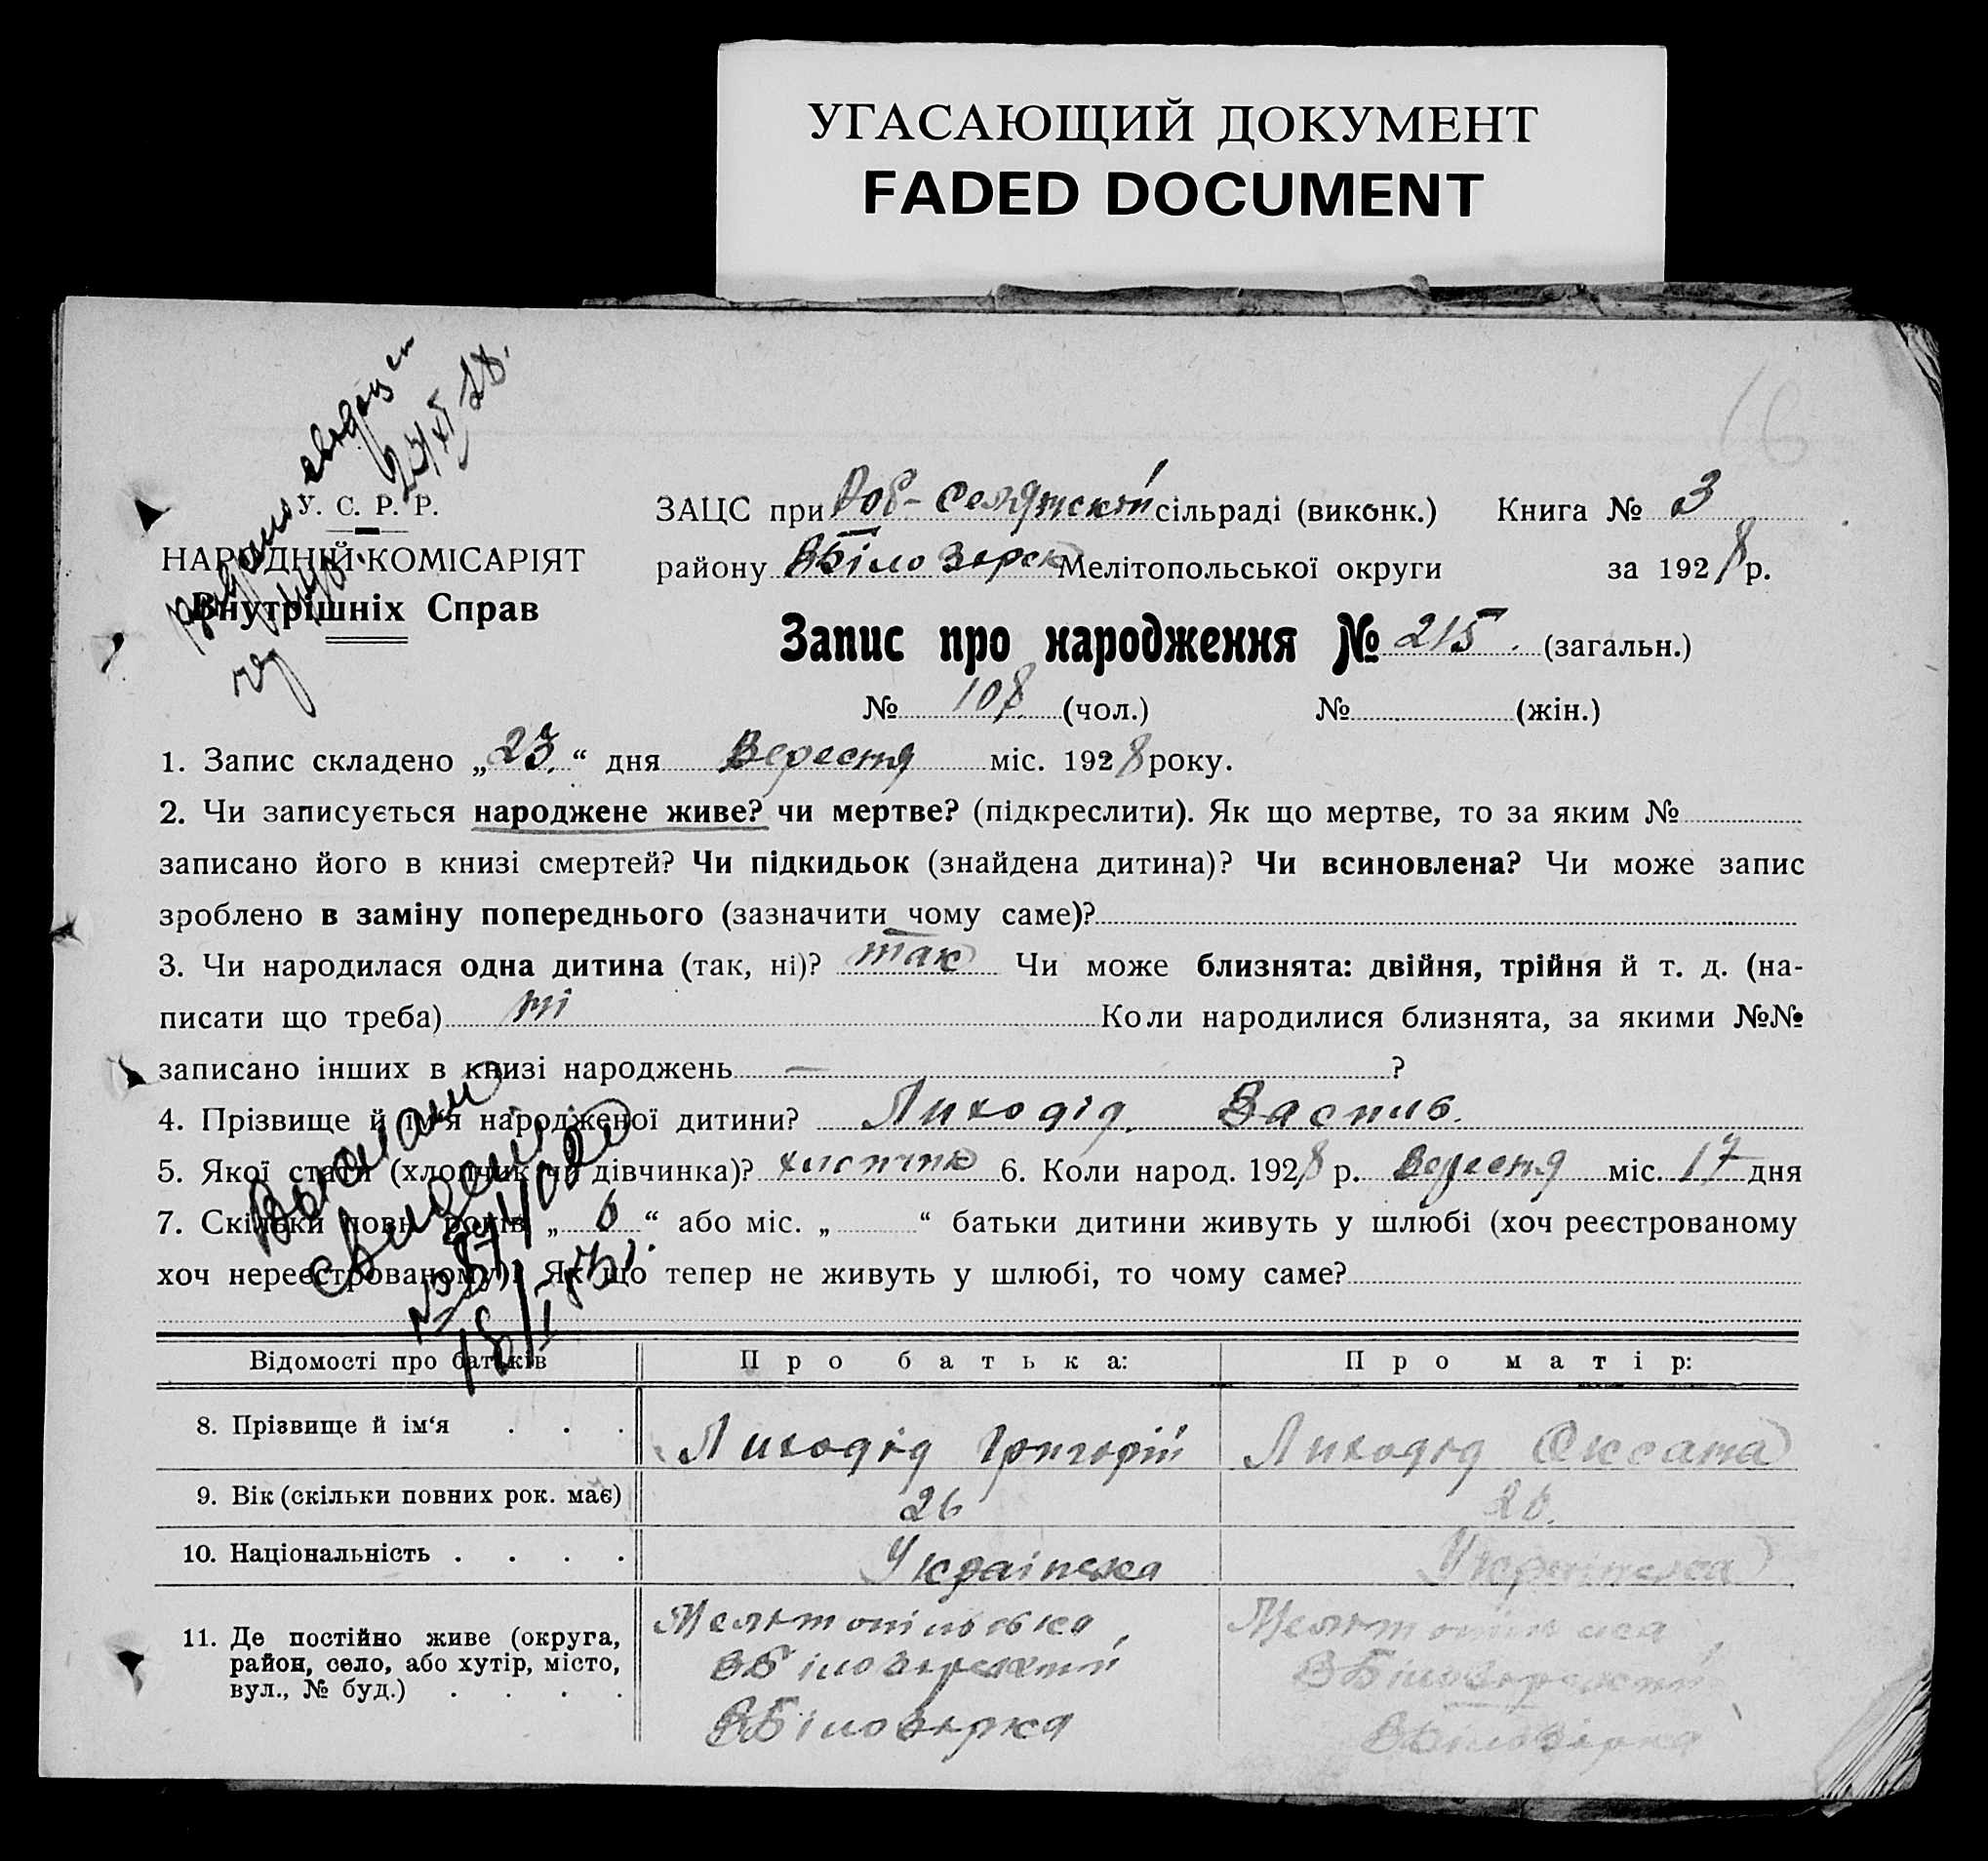 УГАСАЮЩИЙ ДОКУМЕНТ
FADED DOCUMENT
16
Видано
27/XI 28.
У. С. Р. Р.
НАРОДНІЙ КОМІСАРІЯТ
Внутрішніх Справ
ЗАЦС при Роб-Селянській сільраді (виконк.) Книга № 3
району ВБілозерськ Мелітопольської округи за 1928 р.
Запис про народження № 215. (загальн.)
№ 108 (чол.) № (жін.)
1. Запис складено „23.“ дня Вересня міс. 1928 року.
2. Чи записується народжене живе? чи мертве? (підкреслити). Як що мертве, то за яким №
записано його в книзі смертей? Чи підкидьок (знайдена дитина)? Чи всиновлена? Чи може запис
зроблено в заміну попереднього (зазначити чому саме)?
3. Чи народилася одна дитина (так, ні)? так Чи може близнята: двійня, трійня й т. д. (на-
писати що треба) ні Коли народилися близнята, за якими №№
записано інших в книзі народжень — ?
4. Прізвище й ім‘я народженої дитини? Лиходід. Василь.
5. Якої статі (хлопчик чи дівчинка)? хлопчик 6. Коли народ. 1928 р. вересня міс. 17 дня
7. Скільки повн. років „6“ або міс. „ “ батьки дитини живуть у шлюбі (хоч реєстрованому
хоч нереєстрованому)? Як що тепер не живуть у шлюбі, то чому саме?
Відомості про батьків Про батька: Про матір:
8. Прізвище й ім‘я . . . Лиходід Григорій Лиходід Оксана
9. Вік (скільки повних рок. має) 26 26.
10. Національність . . . . Українська Українська
11. Де постійно живе (округа, район, село, або хутір, місто, вул., № буд.) . . . .
Мелітопільська, Мелітопільська,
ВБілозерський ВБілозерський
ВБілозірка ВБілозірка